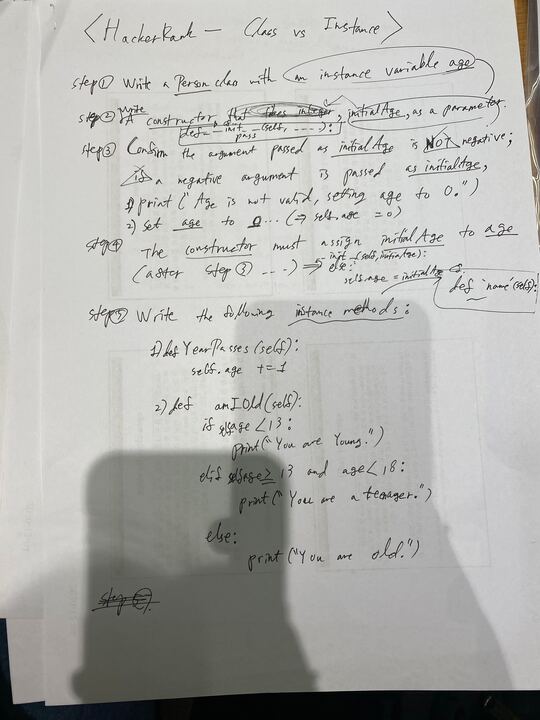 <HackerRank — Class vs Instance>
step① Write a Person class with an instance variable age
step② Write A constructor, that takes integer, initialAge, as a parameter.
def __init__(self, ....):
pass
step③ Confirm the argument passed as initialAge is NOT negative;
if a negative argument is passed as initialAge,
1) print("Age is not valid, setting age to 0.")
2) set age to 0... (⇒ self.age = 0)
step④ The constructor must assign initialAge to age
(after step ③ ....) ⇒ __init__(self, initialAge):
else:
self.age = initialAge
def 'name'(self):
step⑤ Write the following instance methods:
1) def YearPasses(self):
self.age += 1
2) def amIOld(self):
if self.age < 13:
print("You are Young.")
elif self.age ≥ 13 and age < 18:
print("You are a teenager.")
else:
print("You are old.")
step⑥